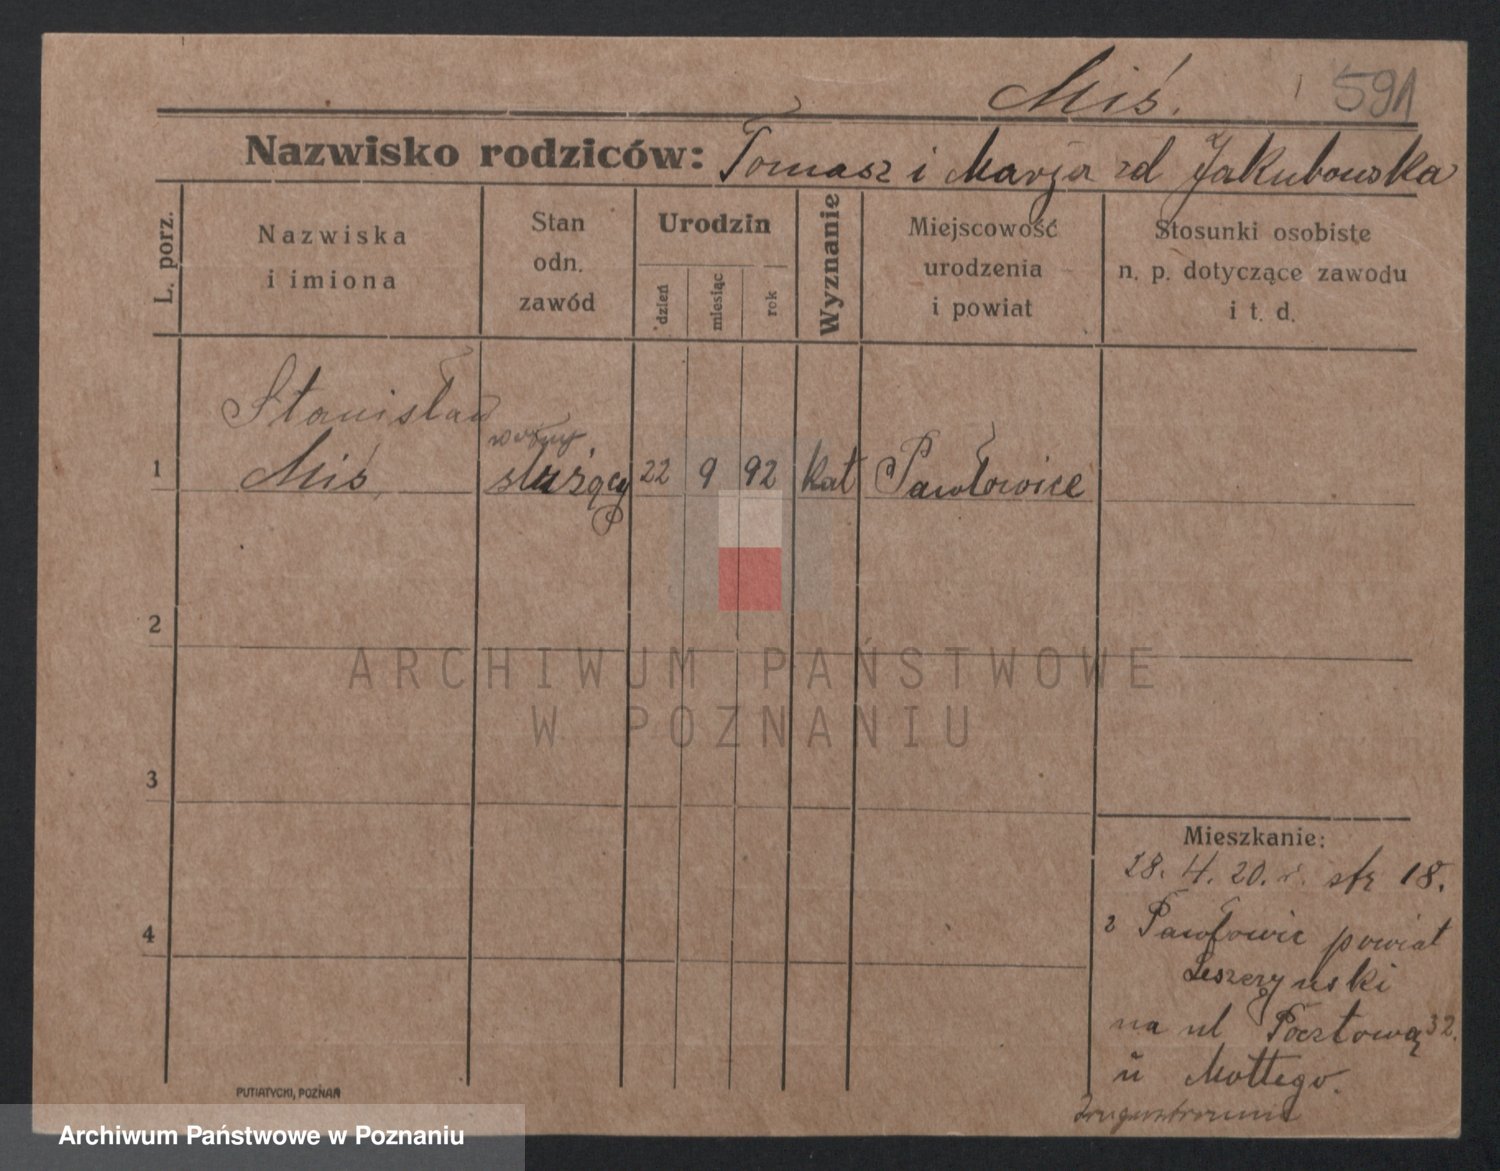 Miś. 591
Nazwisko rodziców: Tomasz i Marja zd Jakubowska
L. porz.
Nazwiska
i imiona
Stan
odn.
zawód
Urodzin
dzień
miesiąc
rok
Wyznanie
Miejscowość
urodzenia
i powiat
Stosunki osobiste
n. p. dotyczące zawodu
i t. d.
Stanisław
woźny
1 Miś służący 22 9 92 kat Pawłowice
2
ARCHIWUM PAŃSTWOWE
W POZNANIU
3
4
Mieszkanie:
28. 4. 20. r. str 18.
z Pawłowic powiat
Leszczynski
na ul Pocztową 32.
u Mottego.
PUTIATYCKI, POZNAŃ
Archiwum Państwowe w Poznaniu